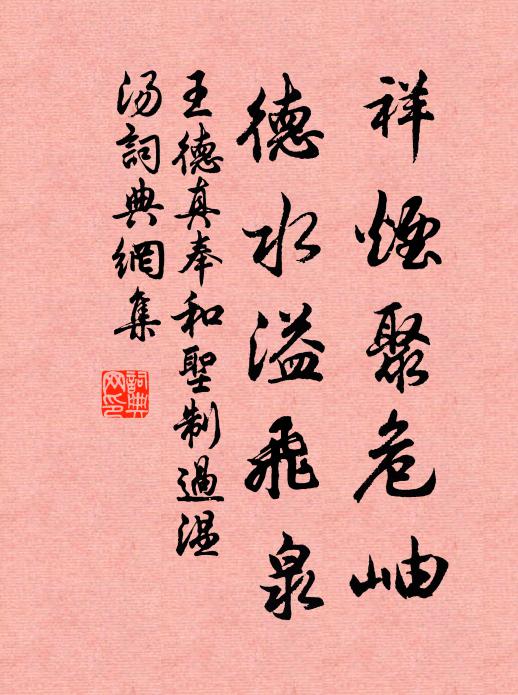 祥煙聚危岫
德水溢飛泉
王德真奉和聖制過温
湯詞典網集
詞典
网印